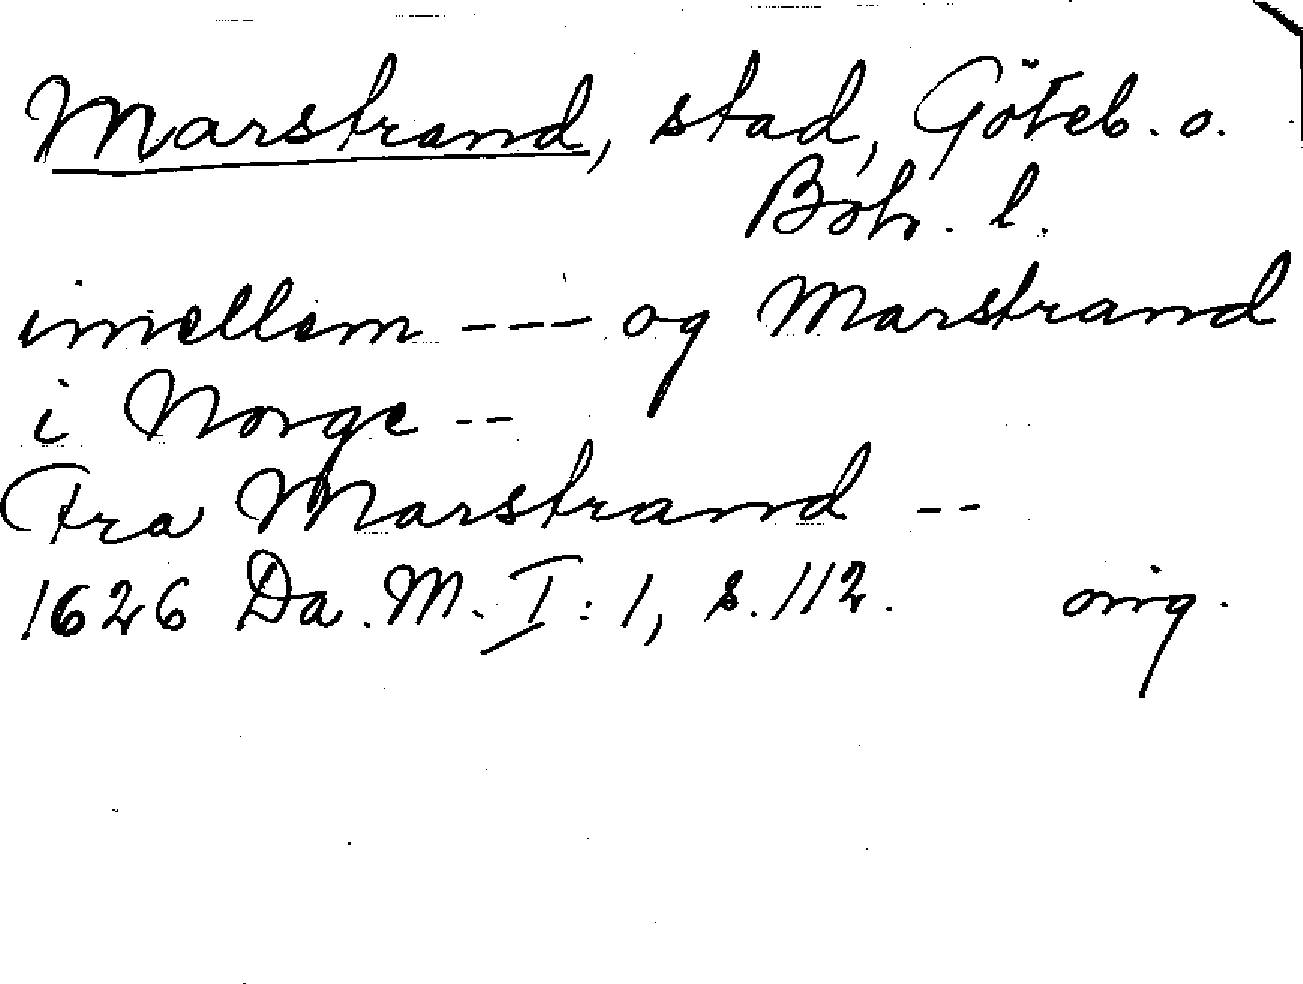 Marstrand, stad, Göteb. o.
Boh. l.
imellem --- og Marstrand
i Norge --
Fra Marstrand --
1626 Da. M. I: 1, s. 112. orig.